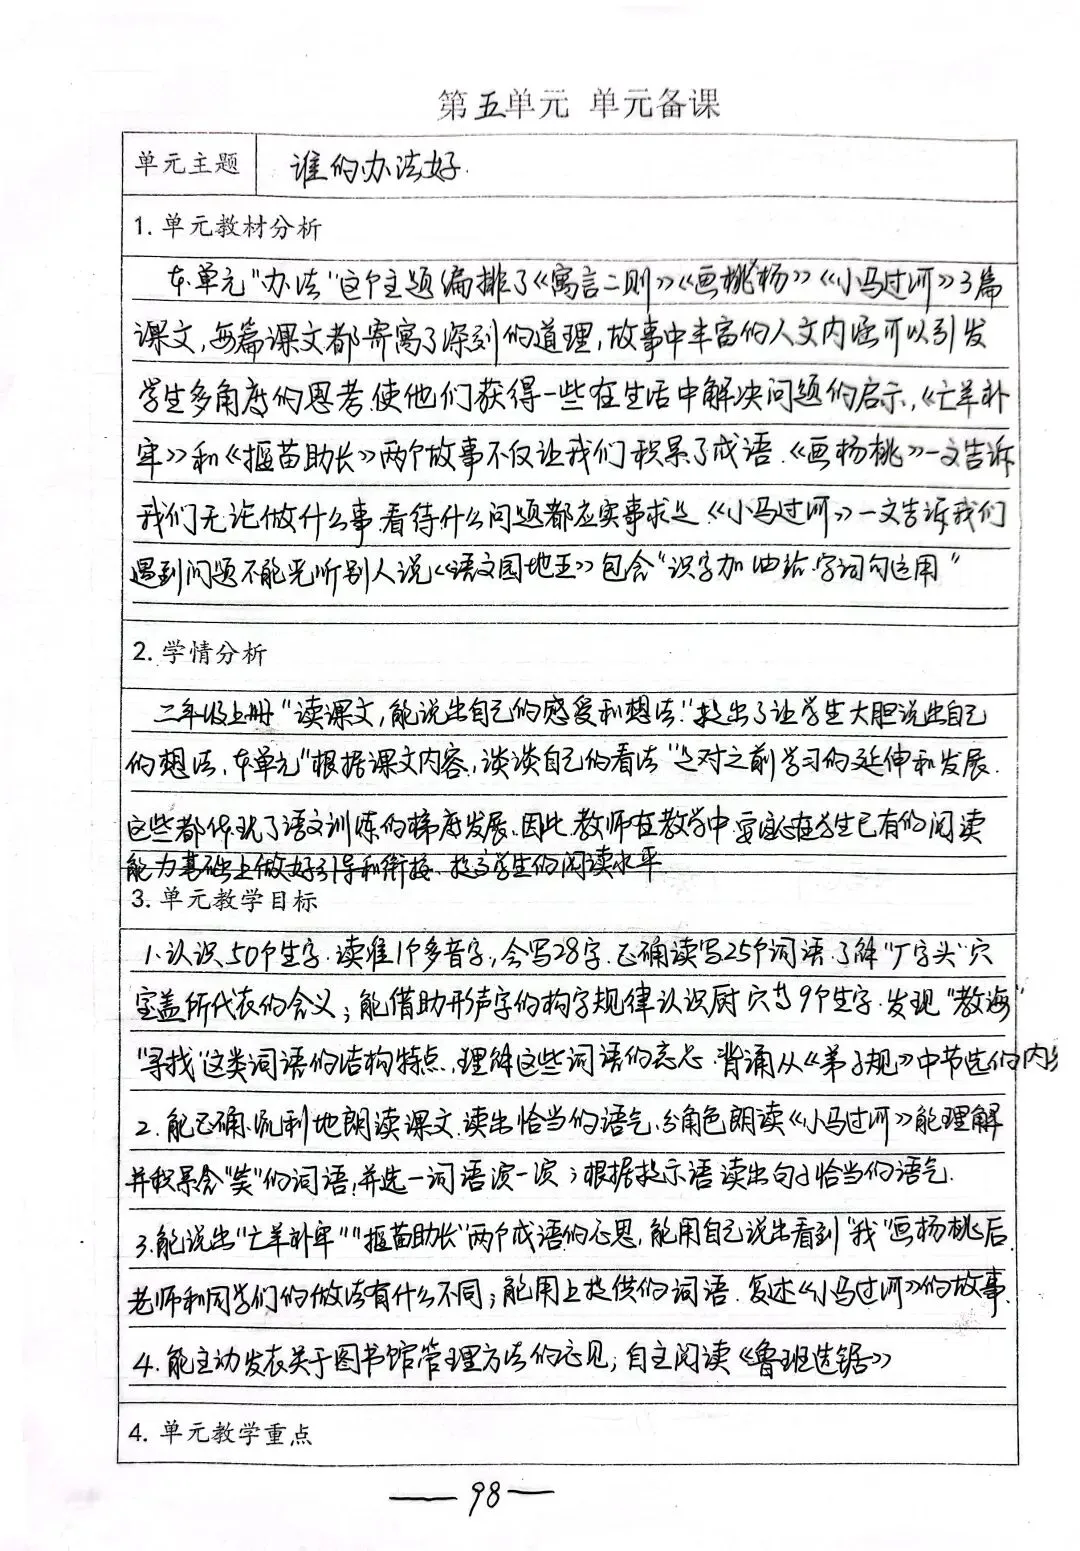 第五单元 单元备课
单元主题 谁的办法好.
1. 单元教材分析
本单元"办法"这个主题编排了《寓言二则》《画桃杨》《小马过河》3篇
课文,每篇课文都寄寓了深刻的道理,故事中丰富的人文内涵可以引发
学生多角度的思考.使他们获得一些在生活中解决问题的启示,《亡羊补
牢》和《揠苗助长》两个故事不仅让我们积累了成语.《画杨桃》一文告诉
我们无论做什么事.看待什么问题都应实事求是.《小马过河》一文告诉我们
遇到问题不能光听别人说《语文园地五》包含"识字加油站.字词句运用"
2. 学情分析
二年级上册"读课文,能说出自己的感受和想法."提出了让学生大胆说出自己
的想法,本单元"根据课文内容,谈谈自己的看法"是对之前学习的延伸和发展.
这些都体现了语文训练的梯度发展.因此.教师在教学中要在学生已有的阅读
能力基础上做好引导和衔接.提高学生的阅读水平
3. 单元教学目标
1.认识50个生字.读准1个多音字,会写28字.正确读写25个词语.了解"厂字头"穴
宝盖所代表的含义;能借助形声字的构字规律认识厨 穴等9个生字.发现"教海"
"寻找"这类词语的结构特点,理解这些词语的意思.背诵从《弟子规》中节选的内
2.能正确.流利地朗读课文.读出恰当的语气.分角色朗读《小马过河》能理解
并积累含"笑"的词语,并选一词语演一演;根据提示语读出句子恰当的语气.
3.能说出"亡羊补牢""揠苗助长"两个成语的意思,能用自己说出看到"我"画杨桃后.
老师和同学们的做法有什么不同;能用上提供的词语.复述《小马过河》的故事.
4.能主动发表关于图书馆管理方法的意见;自主阅读《鲁班造锯》
4. 单元教学重点
—98—